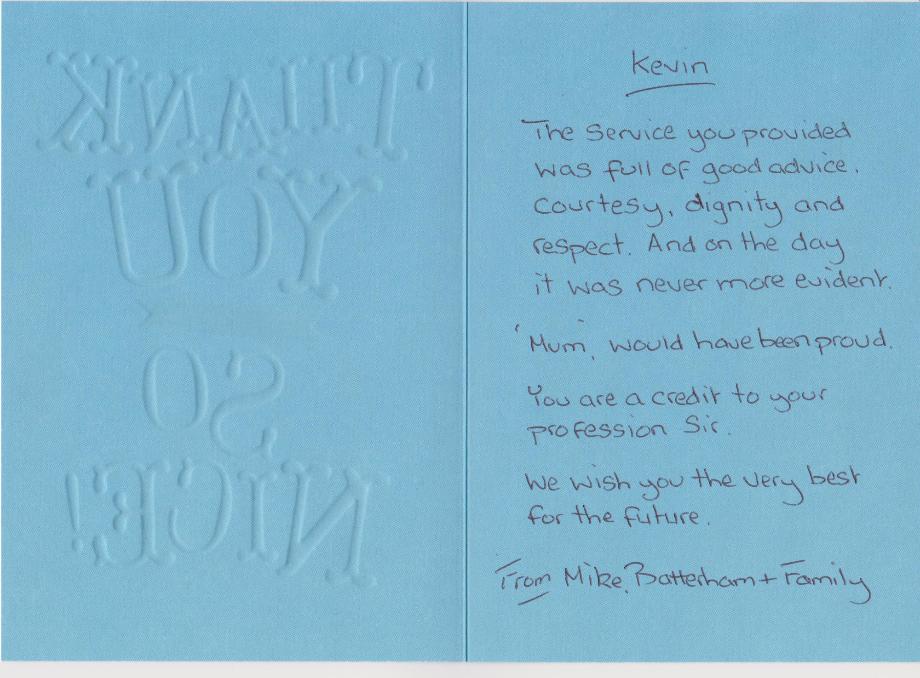 THANK
YOU
SO
NICE!
Kevin
The service you provided
was full of good advice,
courtesy, dignity and
respect. And on the day
it was never more evident.
'Mum' would have been proud.
You are a credit to your
profession Sir.
We wish you the very best
for the future.
From Mike, Batterham + Family